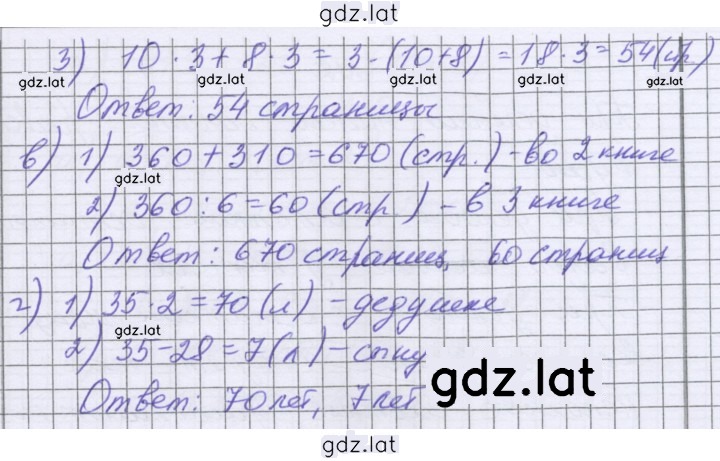 gdz.lat
3) 10 · 3 + 8 · 3 = 3 · (10+8) = 18 · 3 = 54 (стр.)
gdz.lat gdz.lat gdz.lat gdz.lat
Ответ: 54 страницы
в) 1) 360 + 310 = 670 (стр.) - во 2 книге
gdz.lat
2) 360 : 6 = 60 (стр.) - в 3 книге
Ответ: 670 страниц, 60 страниц
г) 1) 35 · 2 = 70 (л) - дедушке
gdz.lat
2) 35 - 28 = 7 (л) - сыну
gdz.lat
Ответ: 70 лет, 7 лет
gdz.lat